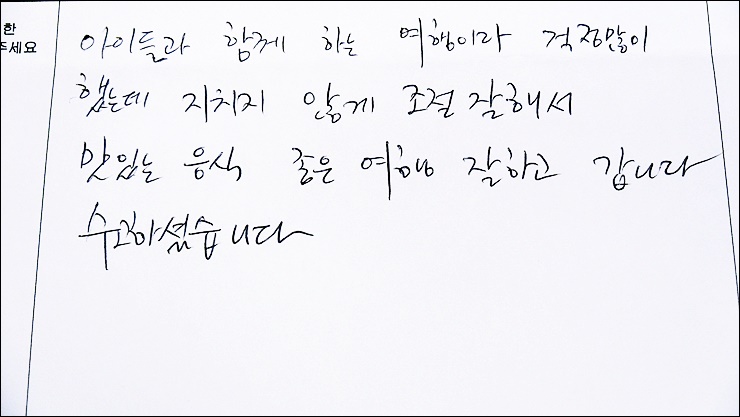 한
주세요
아이들과 함께 하는 여행이라 걱정많이
했는데 지치지 않게 조절 잘해서
맛있는 음식 좋은 여행 잘하고 갑니다
수고하셨습니다